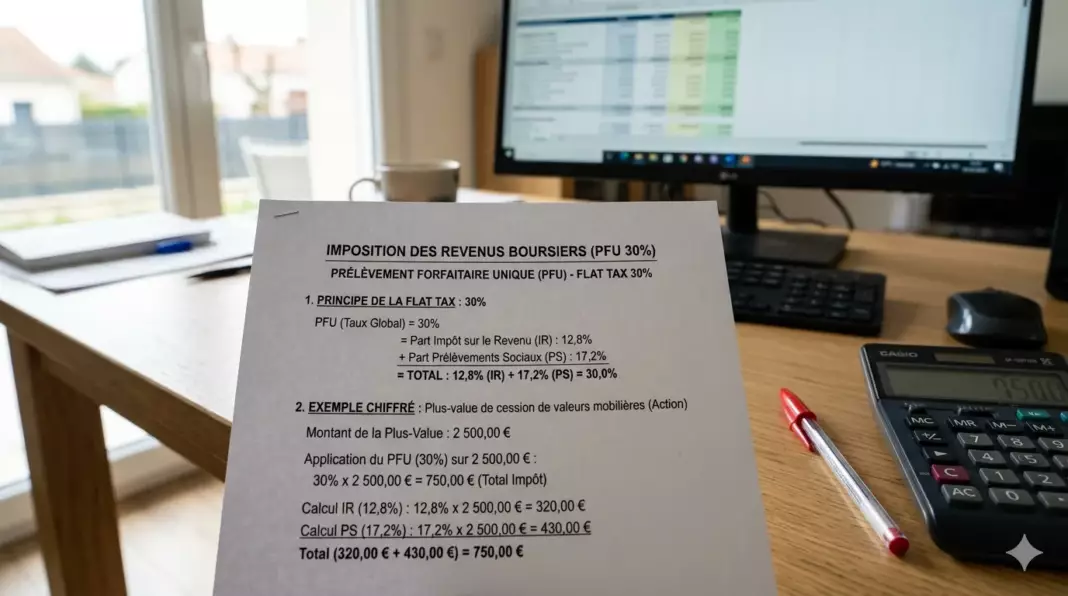 IMPOSITION DES REVENUS BOURSIERS (PFU 30%)
PRÉLÈVEMENT FORFAITAIRE UNIQUE (PFU) - FLAT TAX 30%
1. PRINCIPE DE LA FLAT TAX : 30%
PFU (Taux Global) = 30%
= Part Impôt sur le Revenu (IR) : 12,8%
+ Part Prélèvements Sociaux (PS) : 17,2%
= TOTAL : 12,8% (IR) + 17,2% (PS) = 30,0%
2. EXEMPLE CHIFFRÉ : Plus-value de cession de valeurs mobilières (Action)
Montant de la Plus-Value : 2 500,00 €
Application du PFU (30%) sur 2 500,00 € :
30% x 2 500,00 € = 750,00 € (Total Impôt)
Calcul IR (12,8%) : 12,8% x 2 500,00 € = 320,00 €
Calcul PS (17,2%) : 17,2% x 2 500,00 € = 430,00 €
Total (320,00 € + 430,00 €) = 750,00 €
LG
CASIO
MC MR M- M+
+/- 7 8 9
► 4 5 6
C 1 2 3
AC 0 ·